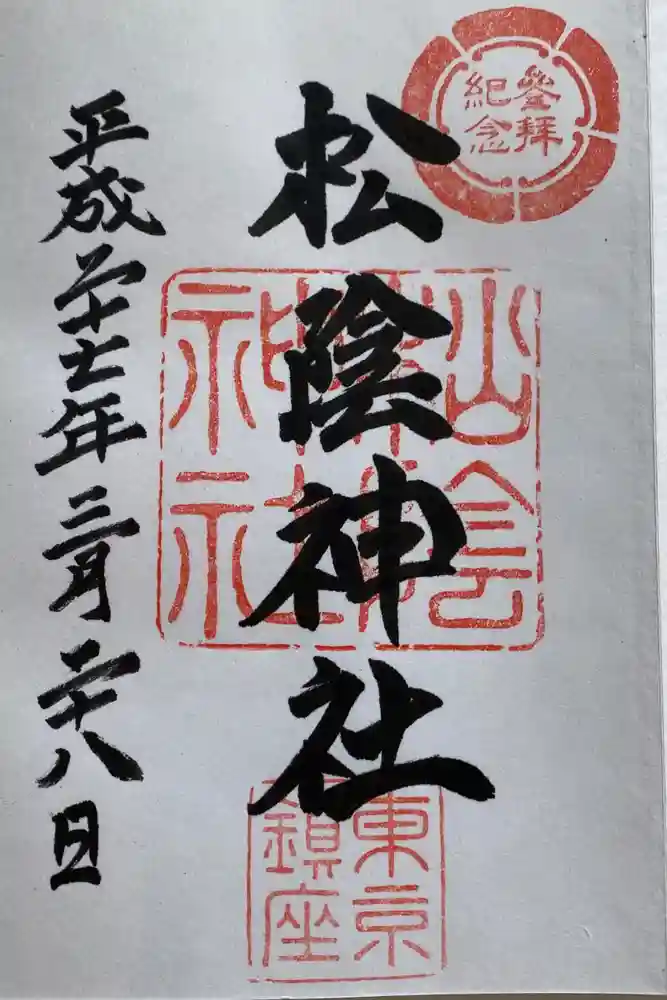 參拜
紀念
松陰神社
松陰
神社
東京
鎮座
平成二十七年三月二十八日